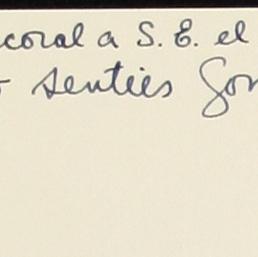 coral a S. E. el
r senties Gon